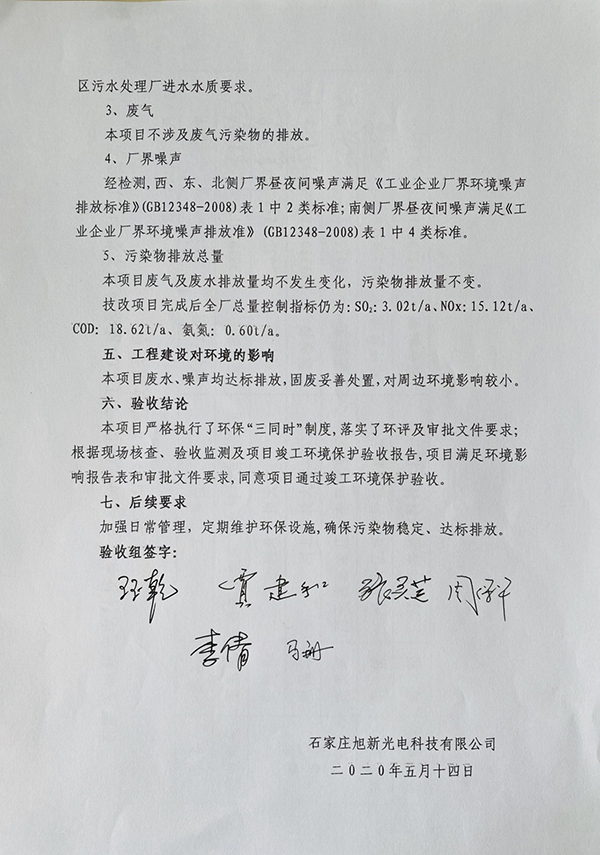 区污水处理厂进水水质要求。
3、废气
本项目不涉及废气污染物的排放。
4、厂界噪声
经检测,西、东、北侧厂界昼夜间噪声满足《工业企业厂界环境噪声
排放标准》(GB12348-2008)表1中2类标准;南侧厂界昼夜间噪声满足《工
业企业厂界环境噪声排放准》(GB12348-2008)表1中4类标准。
5、污染物排放总量
本项目废气及废水排放量均不发生变化，污染物排放量不变。
技改项目完成后全厂总量控制指标仍为:SO₂:3.02t/a、NOx:15.12t/a、
COD: 18.62t/a、氨氮: 0.60t/a。
五、工程建设对环境的影响
本项目废水、噪声均达标排放,固废妥善处置,对周边环境影响较小。
六、验收结论
本项目严格执行了环保“三同时”制度,落实了环评及审批文件要求;
根据现场核查、验收监测及项目竣工环境保护验收报告,项目满足环境影
响报告表和审批文件要求,同意项目通过竣工环境保护验收。
七、后续要求
加强日常管理，定期维护环保设施,确保污染物稳定、达标排放。
验收组签字:
建
李倩
石家庄旭新光电科技有限公司
二〇二〇年五月十四日